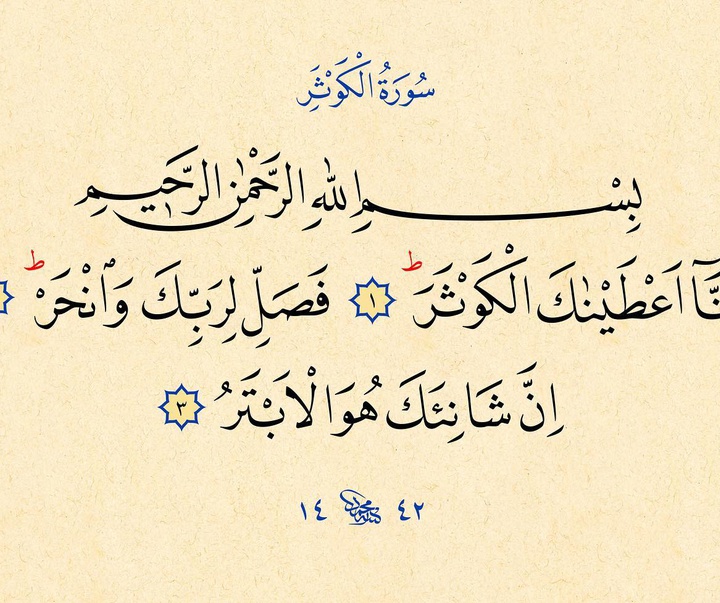 سُورَةُ الْكَوْثَرِ
بِسْمِ اللهِ الرَّحْمٰنِ الرَّحِيمِ
نَّآ اَعْطَيْنٰكَ الْكَوْثَرَ ؕ ١ فَصَلِّ لِرَبِّكَ وَٱنْحَرْ ؕ
اِنَّ شَانِئَكَ هُوَ الْاَبْتَرُ ٣
١٤ ٤٢